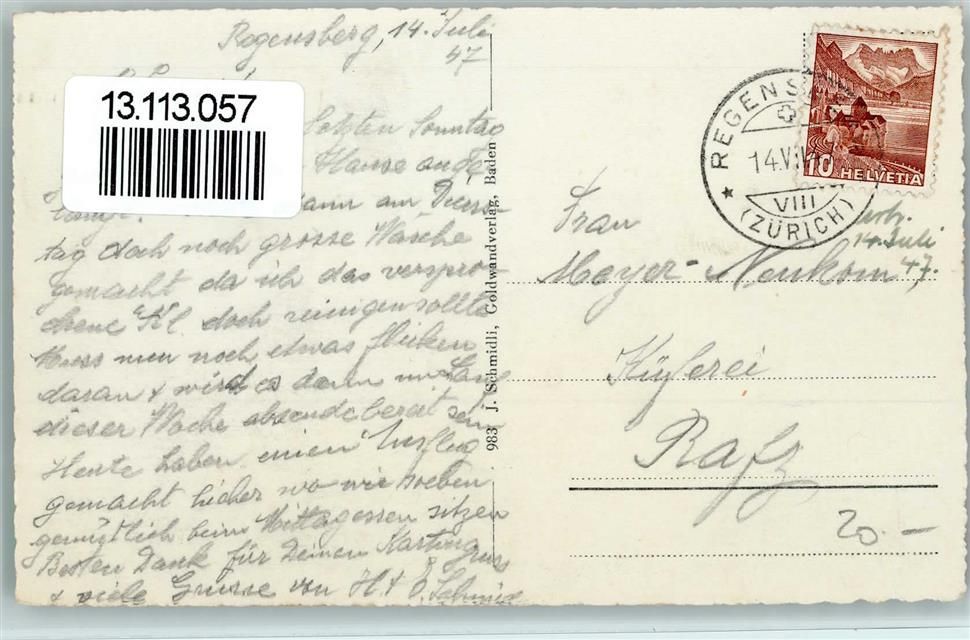 Regensberg, 14. Juli
47
13.113.057
letzten Sonntag
Hause ange
dann am Diens-
tag doch noch grosse Wäsche
gemacht da ich das verspro-
chene Kl. doch reinigen sollte
Muss nun noch etwas flicken
daran & wird es dann im Lauf
dieser Woche absendebereit sein
Heute haben einen Ausflug
gemacht hieher wo wir soeben
gemütlich beim Mittagessen sitzen
Besten Dank für Deinen Kartengruss
& viele Grüsse von H. & O. Schmid
983 J. Schmidli, Goldwandverlag, Baden
REGENS
14.VII
VIII
(ZÜRICH)
10 HELVETIA
14. Juli
47.
Frau
Meyer-Neukom
Küferei
Rafz
20.-